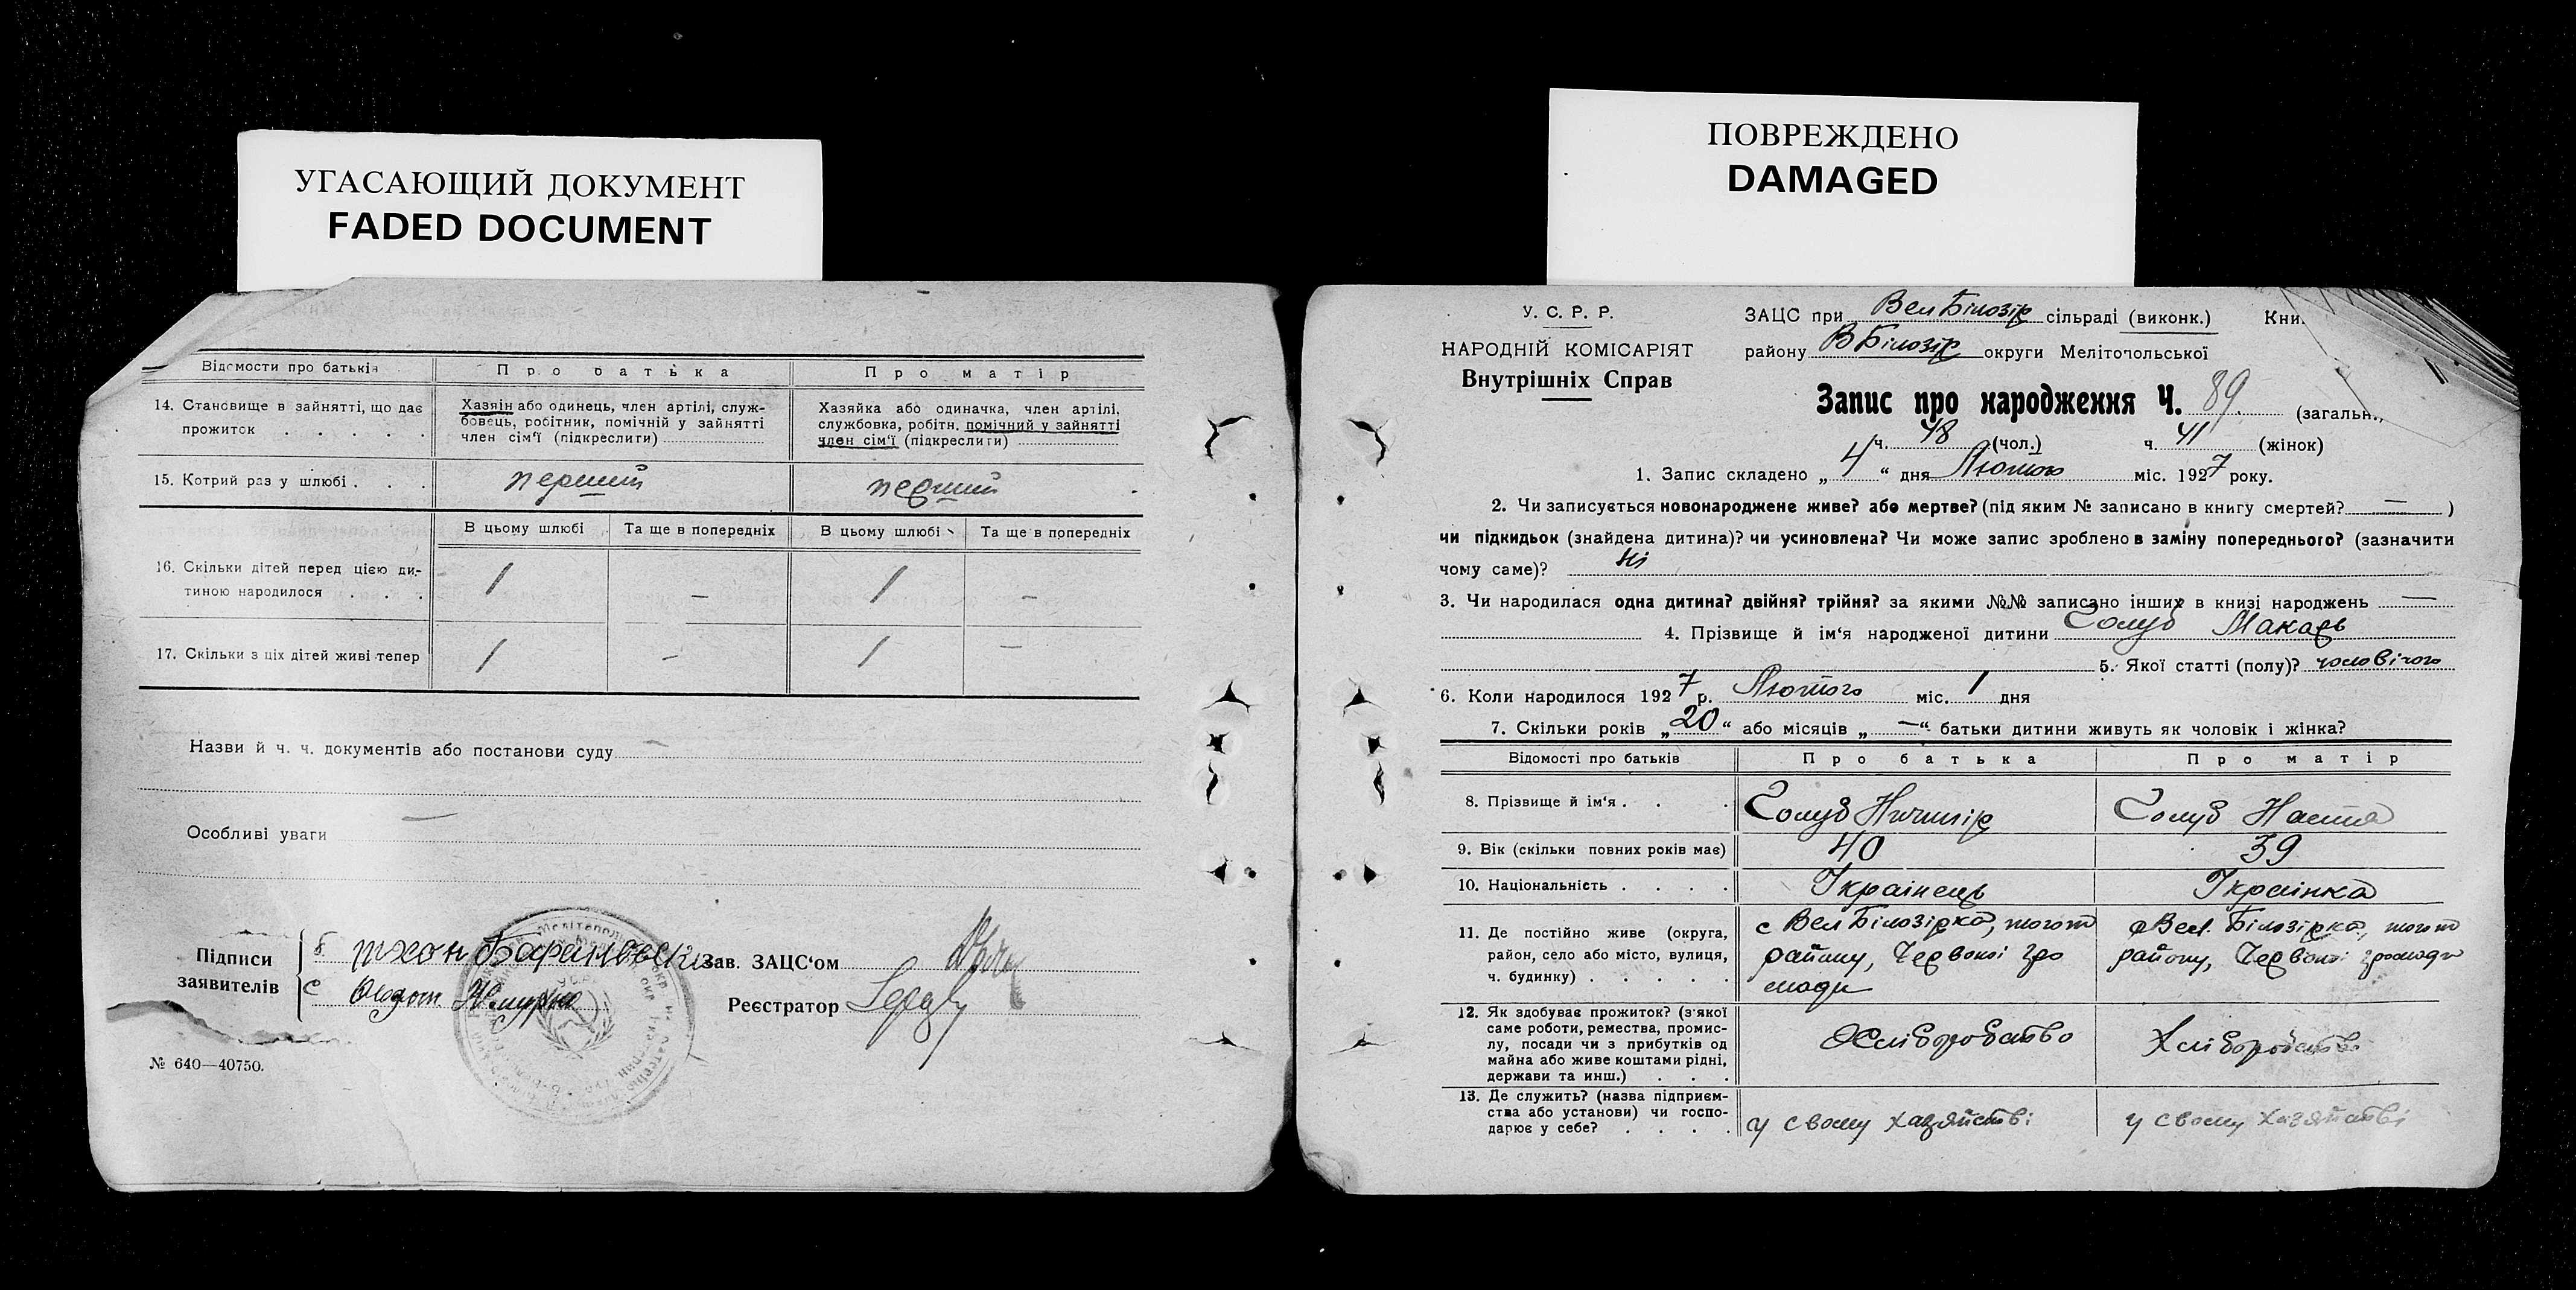 УГАСАЮЩИЙ ДОКУМЕНТ
FADED DOCUMENT
Відомости про батьків
Про батька
Про матір
14. Становище в зайнятті, що дає
прожиток
Хазяін або одинець, член артілі, служ-
бовець, робітник, помічній у зайнятті
член сім'ї (підкреслити)
Хазяйка або одиначка, член артілі,
службовка, робітн. помічний у зайнятті
член сім'ї (підкреслити)
15. Котрий раз у шлюбі
перший
перший
В цьому шлюбі
Та ще в попередніх
В цьому шлюбі
Та ще в попередніх
16. Скільки дітей перед цією ди-
тиною народилося
1 — 1 —
17. Скільки з ціх дітей живі тепер
1 — 1 —
Назви й ч. ч. документів або постанови суду —
Особливі уваги —
Підписи
заявителів
Зав. ЗАЦС'ом
Реєстратор
№ 640—40750.
ПОВРЕЖДЕНО
DAMAGED
У. С. Р. Р.
НАРОДНІЙ КОМІСАРІЯТ
Внутрішніх Справ
ЗАЦС при Вел Білозір сільраді (виконк.) Кни.
району В Білозір округи Мелітопольської
Запис про народження Ч. 89 (загальн.,
ч. 48 (чол.) ч. 41 (жінок)
1. Запис складено „4“ дня Лютого міс. 1927 року.
2. Чи записується новонароджене живе? або мертве? (під яким № записано в книгу смертей? — )
чи підкидьок (знайдена дитина)? чи усиновлена? Чи може запис зроблено в заміну попереднього? (зазначити
чому саме)? Ні
3. Чи народилася одна дитина? двійня? трійня? за якими №№ записано інших в книзі народжень —
4. Прізвище й ім'я народженої дитини Голуб Макарь
5. Якої статті (полу)? чоловічого
6. Коли народилося 1927 р. Лютого міс. 1 дня
7. Скільки років „20“ або місяців „—“ батьки дитини живуть як чоловік і жінка?
Відомості про батьків
Про батька
Про матір
8. Прізвище й ім'я
Голуб Ничипір
Голуб Настя
9. Вік (скільки повних років має)
40
39
10. Національність
Українець
Українка
11. Де постійно живе (округа,
район, село або місто, вулиця,
ч. будинку)
с Вел Білозірка, того ж
району, Червоної гро
мади
с Вел. Білозірка, того ж
району, Червоної громади
12. Як здобуває прожиток? (з'якої
саме роботи, ремества, промис-
лу, посади чи з прибутків од
майна або живе коштами рідні,
держави та инш.)
Хліборобство
Хліборобство
13. Де служить? (назва підприєм-
ства або установи) чи госпо-
дарює у себе?
у своему хазяйстві
у своему хазяйстві